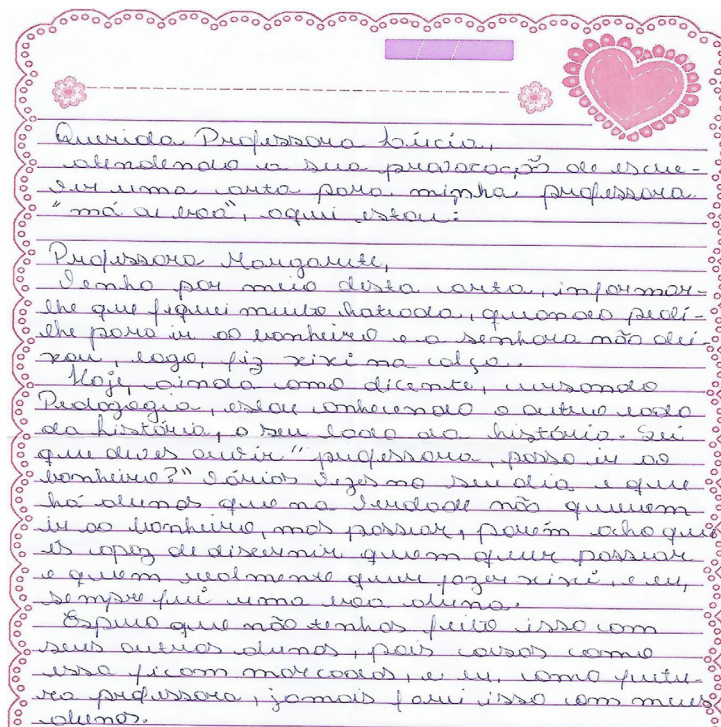 Querida Professora Lúcia,
atendendo a sua provocação de escre-
ver uma carta para minha professora
"má ou boa", aqui estou:
Professora Margarete,
Venho por meio desta carta, informar-
lhe que fiquei muito chateada, quando pedi-
lhe para ir ao banheiro e a senhora não dei-
xou, logo, fiz xixi na calça.
Hoje, ainda como dicente, cursando
Pedagogia, estou conhecendo o outro lado
da história, o seu lado da história. Sei
que deves ouvir "professora, posso ir ao
banheiro?" várias vezes no seu dia e que
há alunos que na verdade não querem
ir ao banheiro, mas passear, porém acho que
és capaz de discernir quem quer passear
e quem realmente quer fazer xixi, e eu,
sempre fui uma boa aluna.
Espero que não tenhas feito isso com
seus outros alunos, pois coisas como
essa ficam marcadas, e eu, como futu-
ra professora, jamais farei isso com meus
alunos.